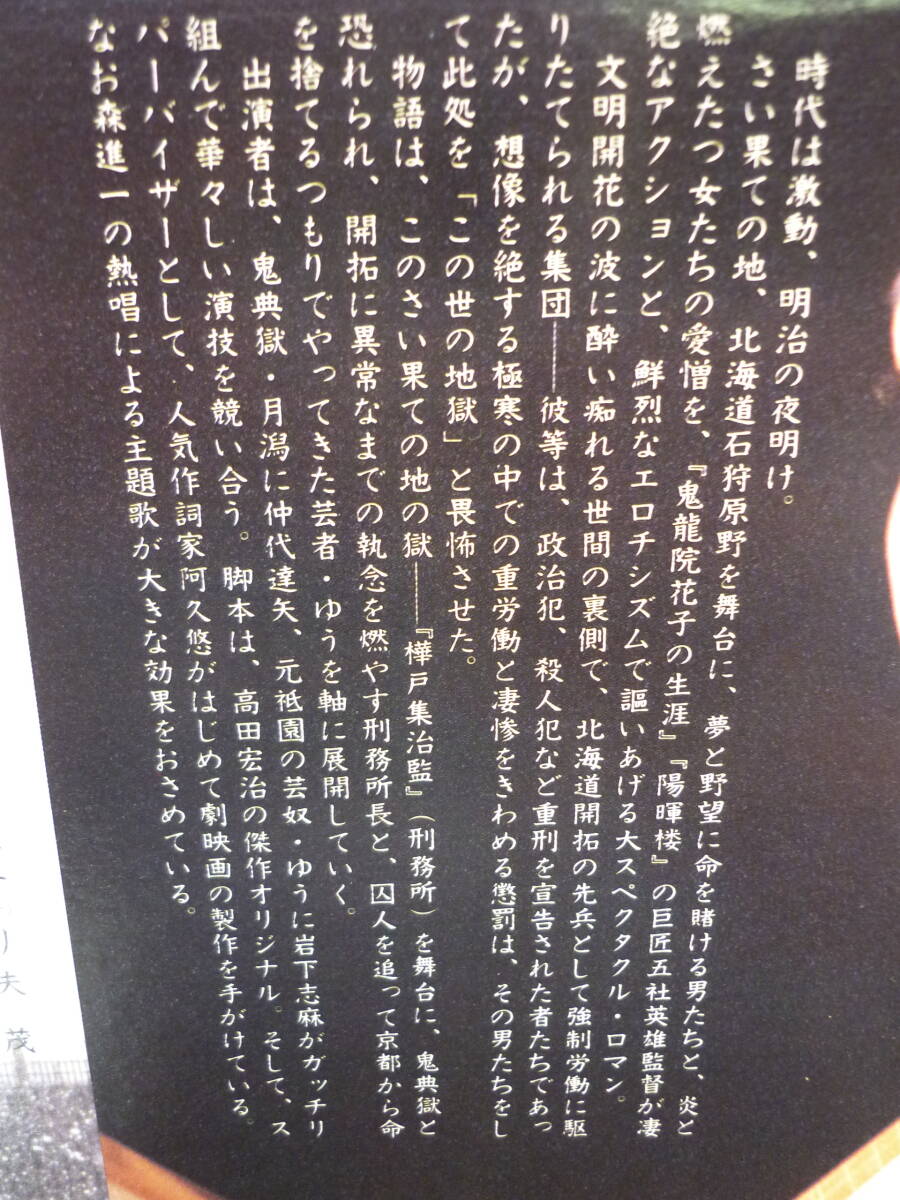 時代は激動、明治の夜明け。
さい果ての地、北海道石狩原野を舞台に、夢と野望に命を賭ける男たちと、炎と
燃えたつ女たちの愛憎を、『鬼龍院花子の生涯』『陽暉楼』の巨匠五社英雄監督が凄
絶なアクションと、鮮烈なエロチシズムで謳いあげる大スペクタクル・ロマン。
文明開花の波に酔い痴れる世間の裏側で、北海道開拓の先兵として強制労働に駆
りたてられる集団――彼等は、政治犯、殺人犯など重刑を宣告された者たちであっ
たが、想像を絶する極寒の中での重労働と凄惨をきわめる懲罰は、その男たちをし
て此処を「この世の地獄」と畏怖させた。
物語は、このさい果ての地の獄――『樺戸集治監』（刑務所）を舞台に、鬼典獄と
恐れられ、開拓に異常なまでの執念を燃やす刑務所長と、囚人を追って京都から命
を捨てるつもりでやってきた芸者・ゆうを軸に展開していく。
出演者は、鬼典獄・月潟に仲代達矢、元祇園の芸奴・ゆうに岩下志麻がガッチリ
組んで華々しい演技を競い合う。脚本は、高田宏治の傑作オリジナル。そして、ス
パーバイザーとして、人気作詞家阿久悠がはじめて劇映画の製作を手がけている。
なお森進一の熱唱による主題歌が大きな効果をおさめている。
り夫
茂